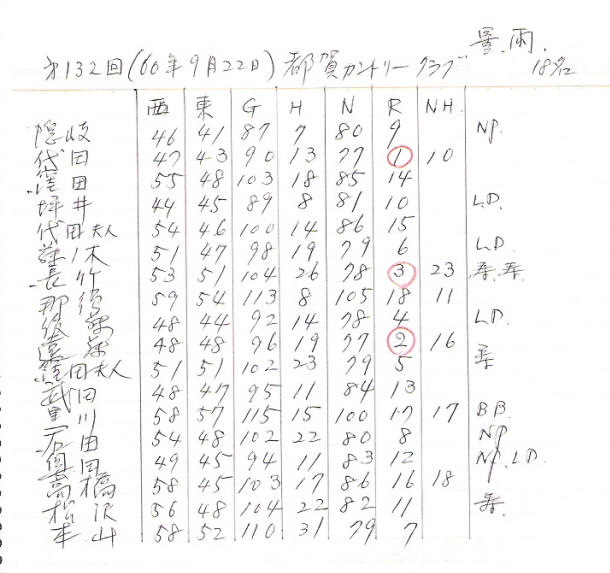 第132回(60年9月22日) 都賀カントリークラブ 曇.雨. 18名
西 東 G H N R NH.
隠岐 46 41 87 7 80 9 NP.
代田 47 43 90 13 77 1 10
窪田 55 48 103 18 85 14
坪井 44 45 89 8 81 10 L.D.
代田夫人 54 46 100 14 86 15
木 51 47 98 19 79 6 L.D.
長竹 53 51 104 26 78 3 23
那須 59 54 113 8 105 18 11
後藤 48 44 92 14 78 4 L.D.
藤 48 48 96 19 77 2 16
窪田夫人 51 51 102 23 79 5
武田 48 47 95 11 84 13
川 58 57 115 15 100 17 17 B B.
石田 54 48 102 22 80 8 NP
田 49 45 94 11 83 12 NP. L.D.
高橋 58 45 103 17 86 16 18
松沢 56 48 104 22 82 11
本山 58 52 110 31 79 7